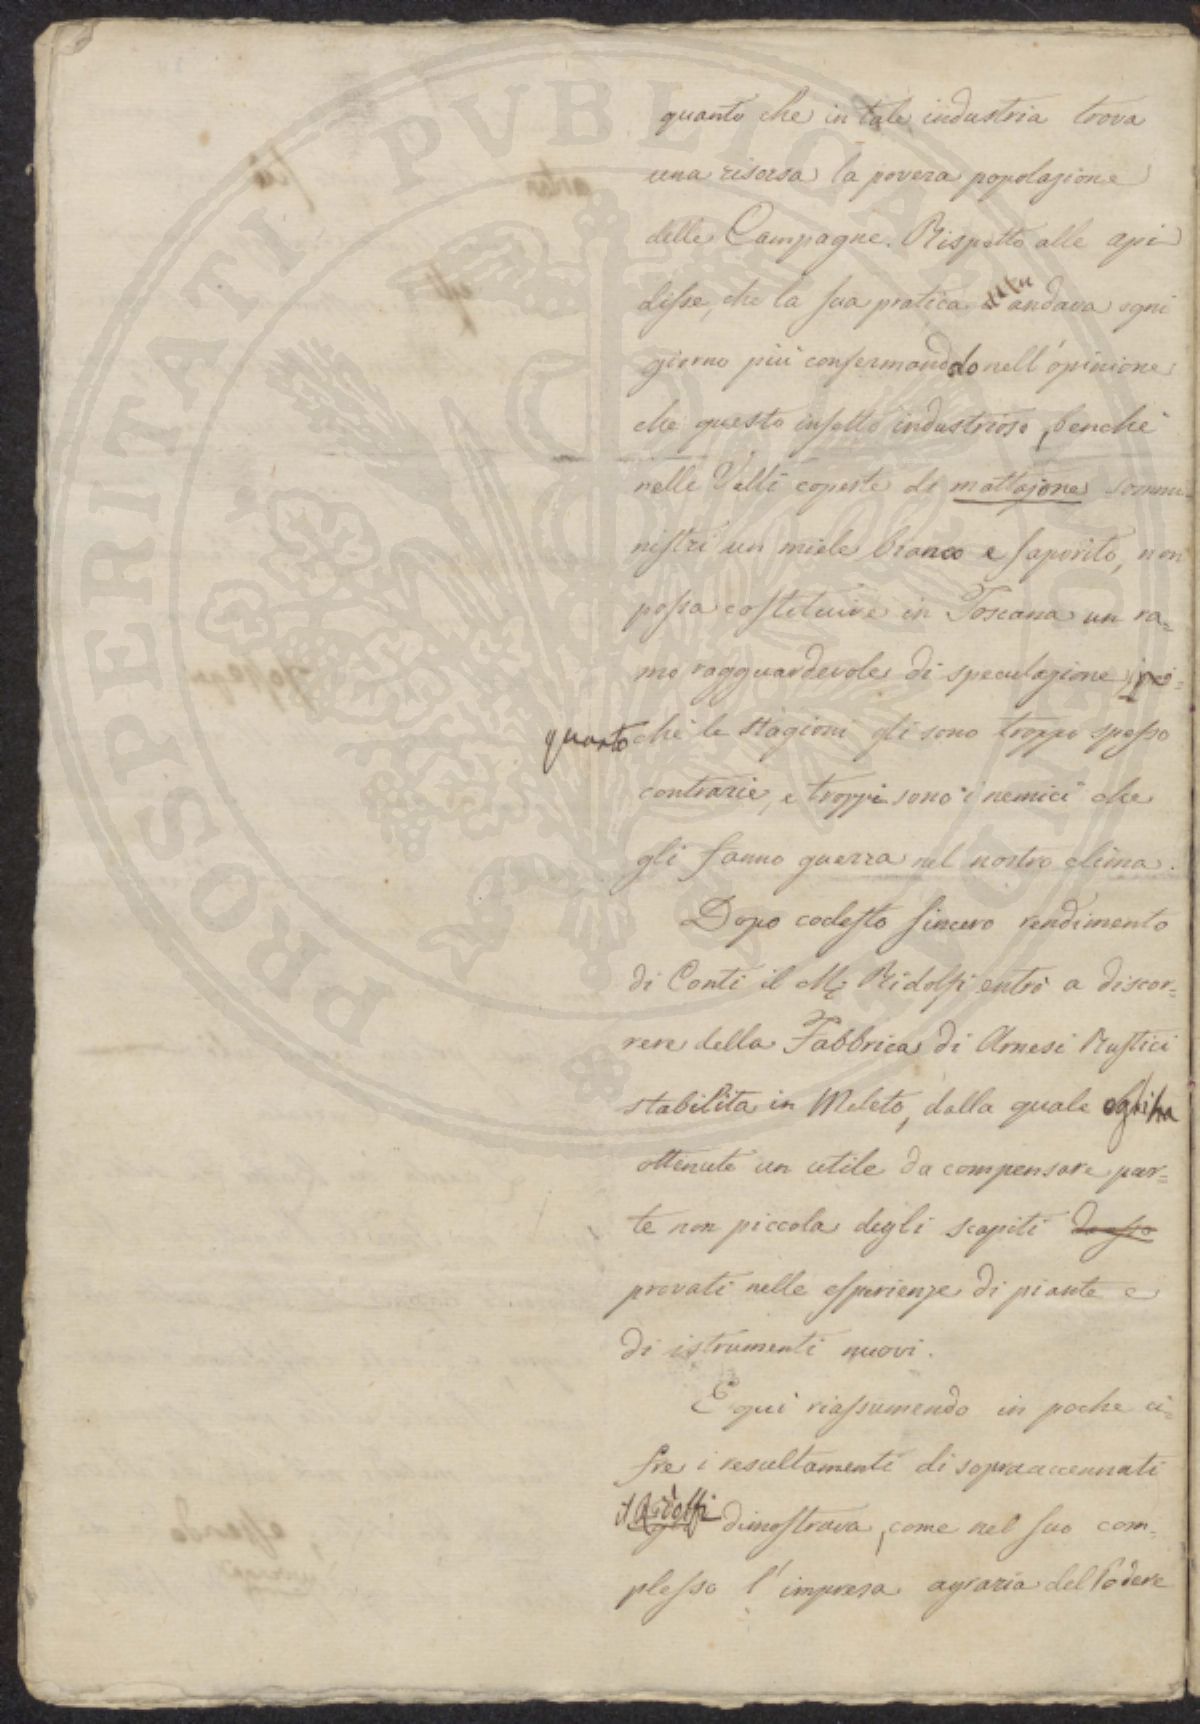 quanto che in tale industria trova
una risorsa la povera popolazione
delle Campagne. Rispetto alle api
disse, che la sua pratica andava ogni
giorno più confermandolo nell'opinione
che questo insetto industrioso, benchè
nelle Valli coperte di mattajone sommi-
nistri un miele bianco e saporito, non
possa costituire in Toscana un ra=
mo ragguardevole di speculazione poi=
quanto chè le stagioni gli sono troppo spesso
contrarie, e troppi sono i nemici che
gli fanno guerra nel nostro clima.
Dopo codesto sincero rendimento
di Conti il M.e Ridolfi entrò a discor=
rere della Fabbrica di Arnesi Rustici
stabilita in Meleto, dalla quale egli ha
ottenute un utile da compensare par=
te non piccola degli scapiti
provati nelle esperienze di piante e
di istrumenti nuovi.
E qui riassumendo in poche ci=
fre i resultamenti di sopraaccennati
il Ridolfi dimostrava, come nel suo com=
plesso l'impresa agraria del Podere
PROSPERITATI PVBLICAE